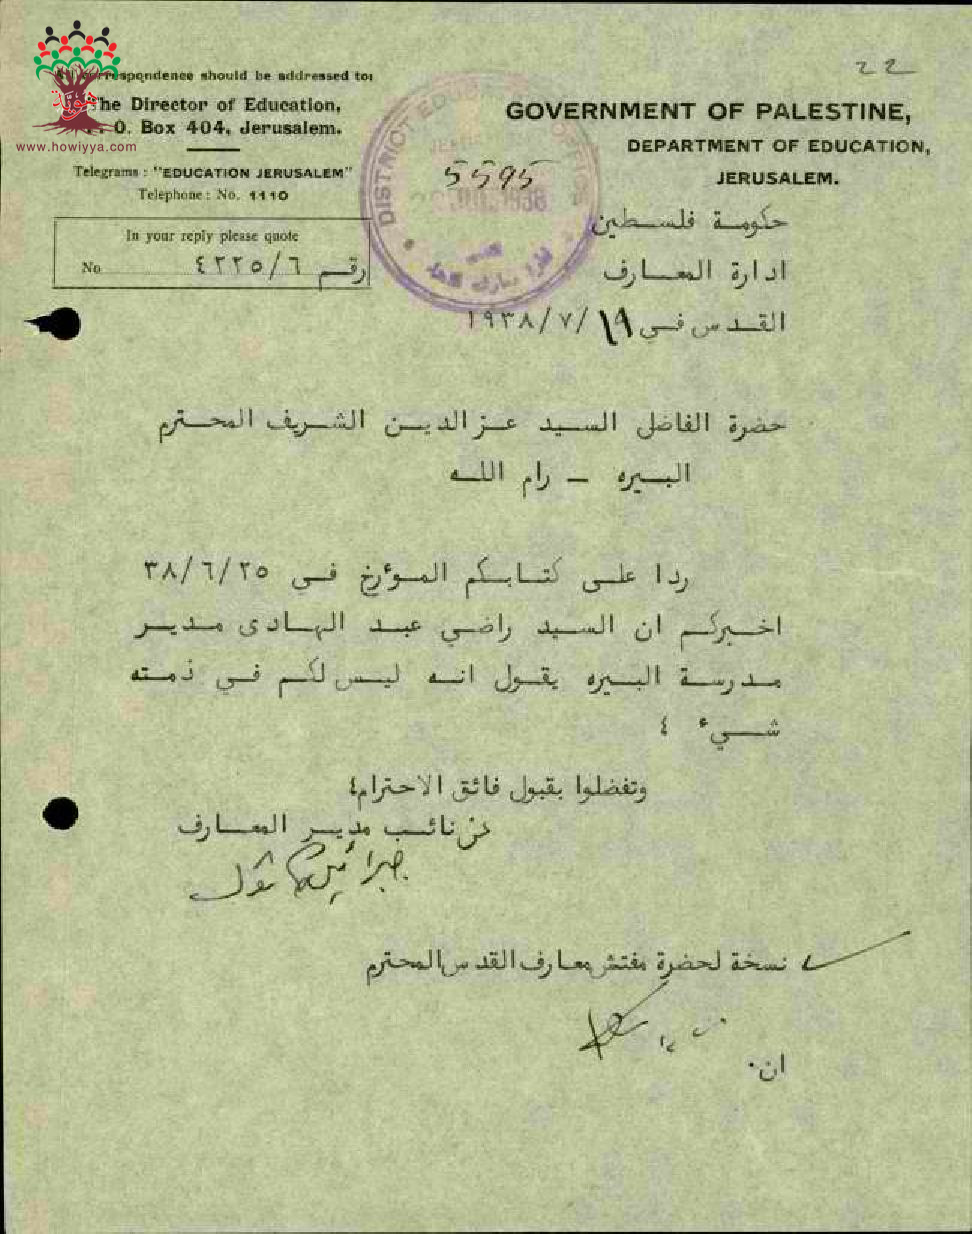 22
All correspondence should be addressed to:
The Director of Education,
P. O. Box 404, Jerusalem.
Telegrams : "EDUCATION JERUSALEM"
Telephone : No. 1110
In your reply please quote
No رقم ٤٢٢٥/٦
حوية
www.howiyya.com
DISTRICT EDUCATION OFFICE
5595
GOVERNMENT OF PALESTINE,
DEPARTMENT OF EDUCATION,
JERUSALEM.
حكومة فلسطين
ادارة المعارف
القدس في ١٩/٧/١٩٣٨
حضرة الفاضل السيد عز الدين الشريف المحترم
البيره – رام الله
ردا على كتابكم المؤرخ في ٣٨/٦/٢٥
اخبركم ان السيد راضي عبد الهادى مدير
مدرسة البيره يقول انه ليس لكم في ذمته
شيء ٤
وتفضلوا بقبول فائق الاحترام٤
عن نائب مدير المعارف
نسخة لحضرة مفتش معارف القدس المحترم
ان.